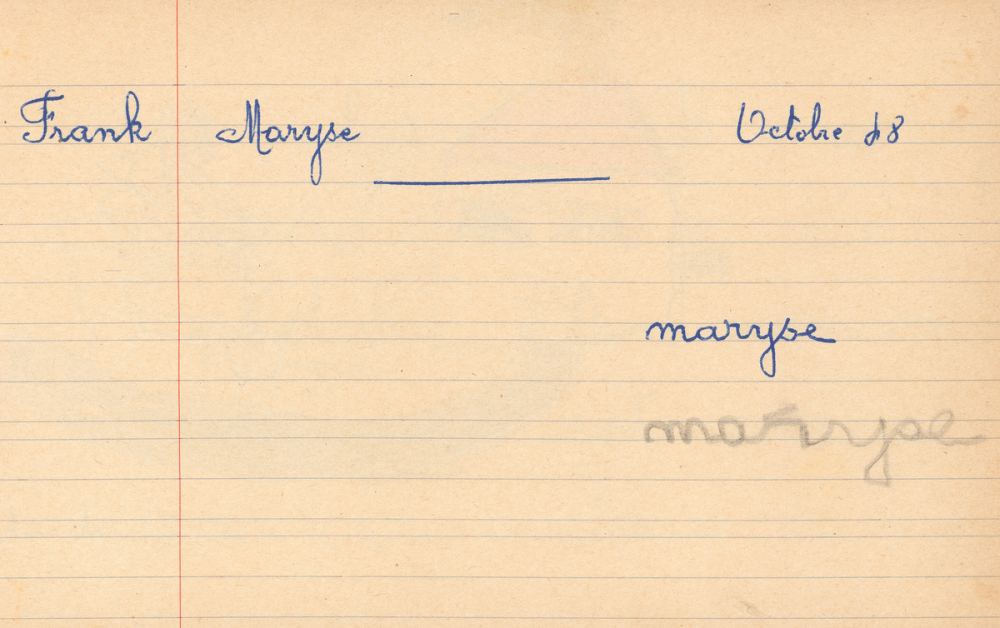 Frank Maryse Octobre 48
maryse
maryse